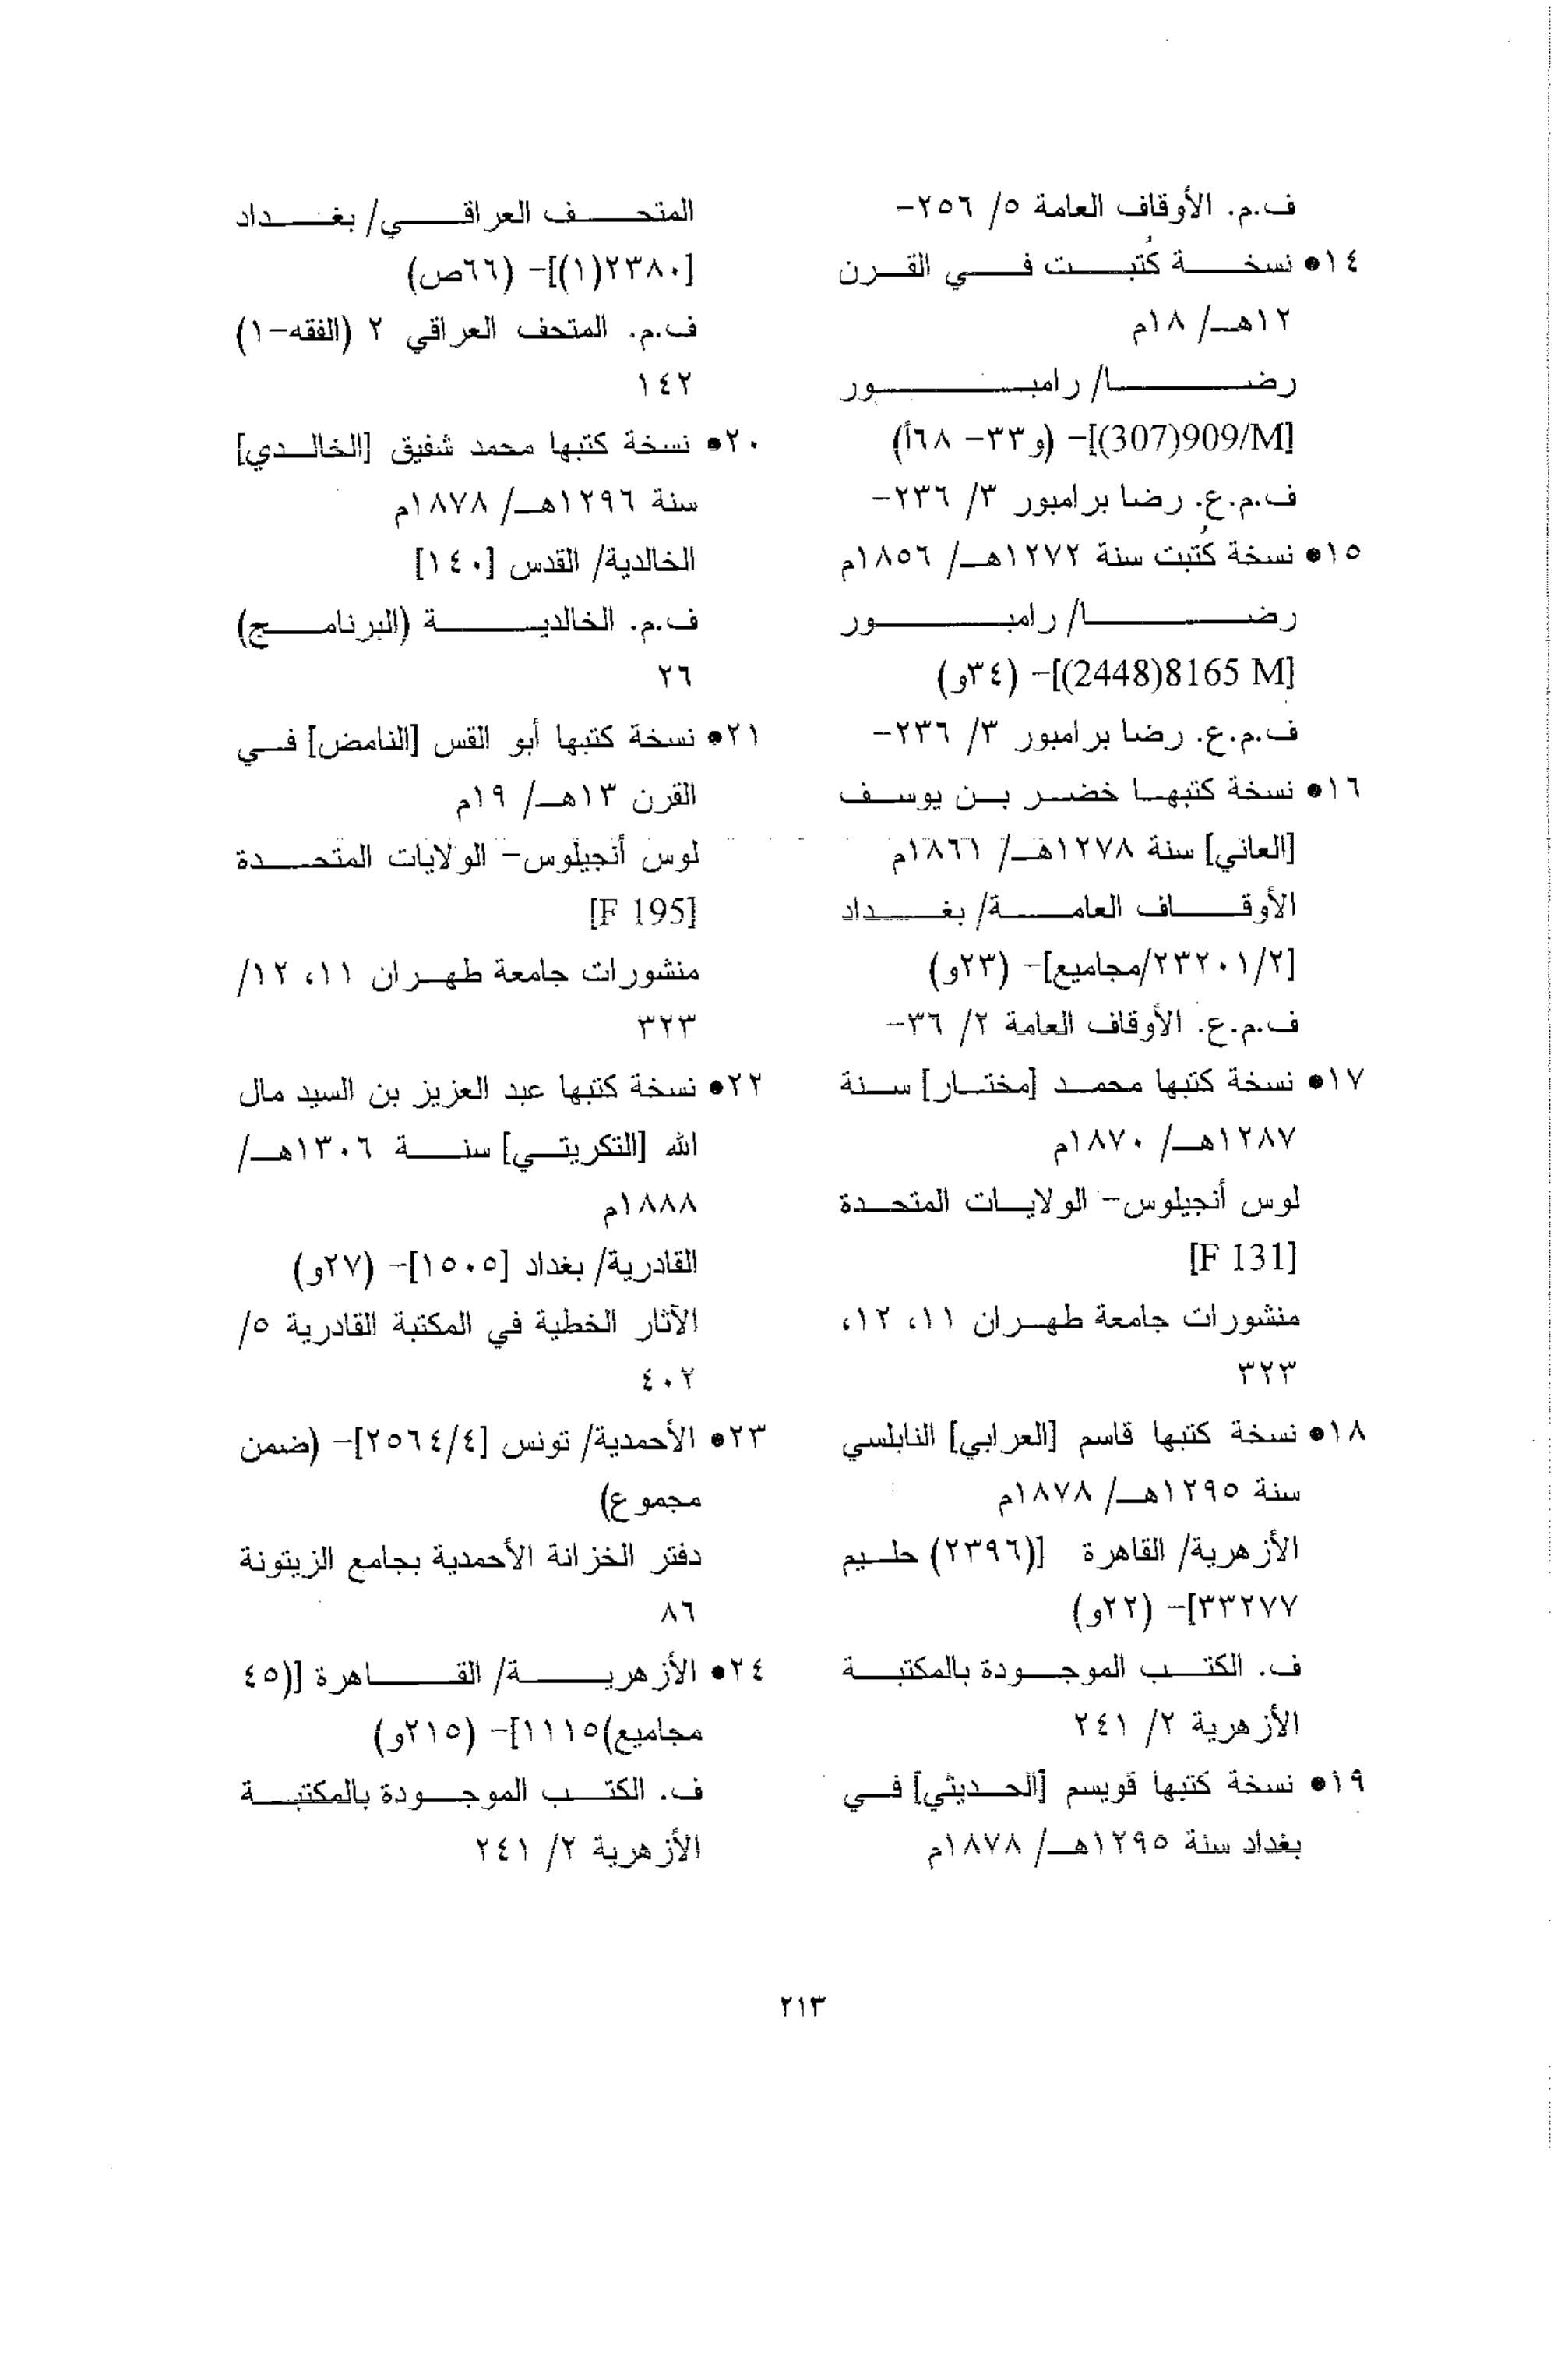 ف.م. الأوقاف العامة ٥/ ٢٥٦-
١٤• نسخة كُتبت في القرن
١٢هـ/ ١٨م
رضا/ رامبور
[M/909(307)]- (و٣٣- ٦٨أ)
ف.م.ع. رضا برامبور ٣/ ٢٣٦-
١٥• نسخة كُتبت سنة ١٢٧٢هـ/ ١٨٥٦م
رضا/ رامبور
[M 8165(2448)]- (٣٤و)
ف.م.ع. رضا برامبور ٣/ ٢٣٦-
١٦• نسخة كتبها خضر بن يوسف
[العاني] سنة ١٢٧٨هـ/ ١٨٦١م
الأوقاف العامة/ بغداد
[٢٣٢٠١/٢/مجاميع]- (٢٣و)
ف.م.ع. الأوقاف العامة ٢/ ٣٦-
١٧• نسخة كتبها محمد [مختار] سنة
١٢٨٧هـ/ ١٨٧٠م
لوس أنجيلوس- الولايات المتحدة
[F 131]
منشورات جامعة طهران ١١، ١٢،
٣٢٣
١٨• نسخة كتبها قاسم [العرابي] النابلسي
سنة ١٢٩٥هـ/ ١٨٧٨م
الأزهرية/ القاهرة [(٢٣٩٦) حليم
٣٣٢٧٧]- (٢٢و)
ف. الكتب الموجودة بالمكتبة
الأزهرية ٢/ ٢٤١
١٩• نسخة كتبها قويسم [الحديثي] في
بغداد سنة ١٢٩٥هـ/ ١٨٧٨م
المتحف العراقي/ بغداد
[٢٣٨٠(١)]- (٦٦ص)
ف.م. المتحف العراقي ٢ (الفقه-١)
١٤٢
٢٠• نسخة كتبها محمد شفيق [الخالدي]
سنة ١٢٩٦هـ/ ١٨٧٨م
الخالدية/ القدس [١٤٠]
ف.م. الخالدية (البرنامج)
٢٦
٢١• نسخة كتبها أبو القس [النامض] في
القرن ١٣هـ/ ١٩م
لوس أنجيلوس- الولايات المتحدة
[F 195]
منشورات جامعة طهران ١١، ١٢/
٣٢٣
٢٢• نسخة كتبها عبد العزيز بن السيد مال
الله [التكريتي] سنة ١٣٠٦هـ/
١٨٨٨م
القادرية/ بغداد [١٥٠٥]- (٢٧و)
الآثار الخطية في المكتبة القادرية ٥/
٤٠٢
٢٣• الأحمدية/ تونس [٢٥٦٤/٤]- (ضمن
مجموع)
دفتر الخزانة الأحمدية بجامع الزيتونة
٨٦
٢٤• الأزهرية/ القاهرة [(٤٥
مجاميع)١١١٥]- (٢١٥و)
ف. الكتب الموجودة بالمكتبة
الأزهرية ٢/ ٢٤١
٢١٣